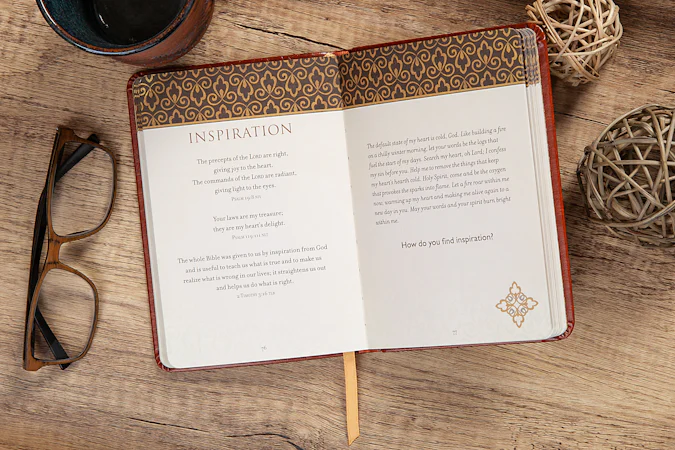 INSPIRATION
The precepts of the LORD are right,
giving joy to the heart.
The commands of the LORD are radiant,
giving light to the eyes.
Psalm 19:8
Your laws are my treasure;
they are my heart's delight.
Psalm 119:111
The whole Bible was given to us by inspiration from God
and is useful to teach us what is true and to make us
realize what is wrong in our lives; it straightens us out
and helps us do what is right.
2 Timothy 3:16
76
The default state of my heart is cold, God. Like building a fire
on a chilly winter morning, let your words be the logs that
fuel the start of my days. Search my heart, oh Lord; I confess
my sin before you. Help me to remove the things that keep
my heart's hearth cold. Holy Spirit, come and be the oxygen
that provokes the sparks into flame. Let a fire roar within me
now, warming up my heart and making me alive again to a
new day in you. May your words and your spirit burn bright
within me.
How do you find inspiration?
77